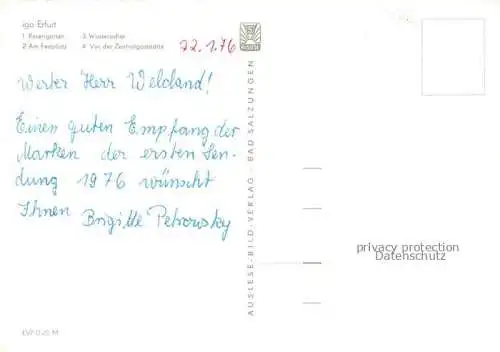 iga Erfurt
1 Rosengarten 3 Wasserachse
2 Am Festplatz 4 Vor der Zentralgaststätte
22.1.76
Werter Herr Weldand!
Einen guten Empfang der
Marken der ersten Sen-
dung 1976 wünscht
Ihnen Brigitte Petrowsky
AUSLESE-BILD-VERLAG · BAD SALZUNGEN
privacy protection
Datenschutz
EVP 0,25 M